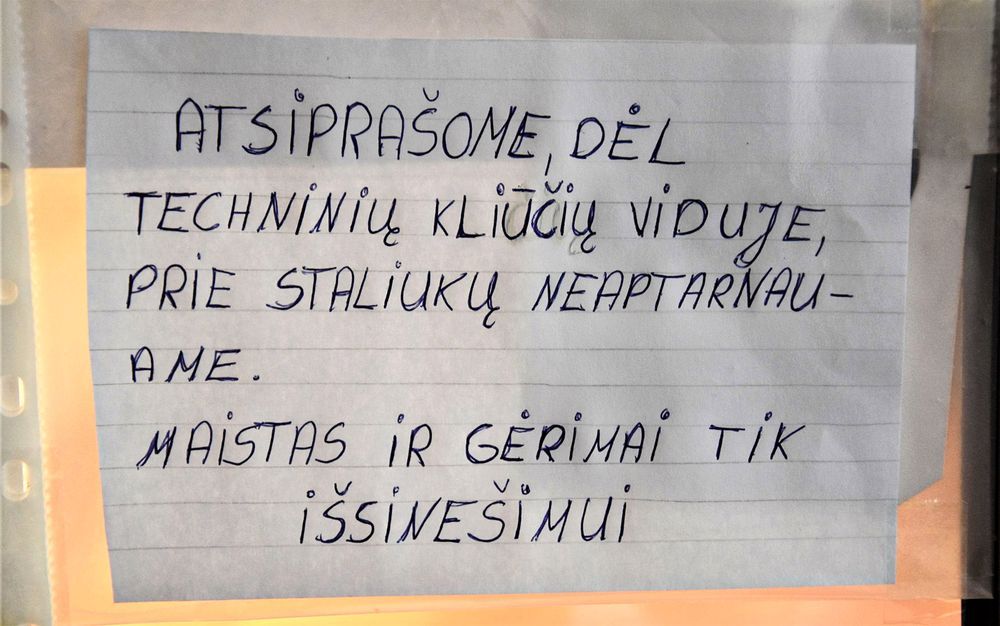 ATSIPRAŠOME, DĖL
TECHNINIŲ KLIŪČIŲ VIDUJE,
PRIE STALIUKŲ NEAPTARNAU-
AME.
MAISTAS IR GĖRIMAI TIK
IŠSINEŠIMUI